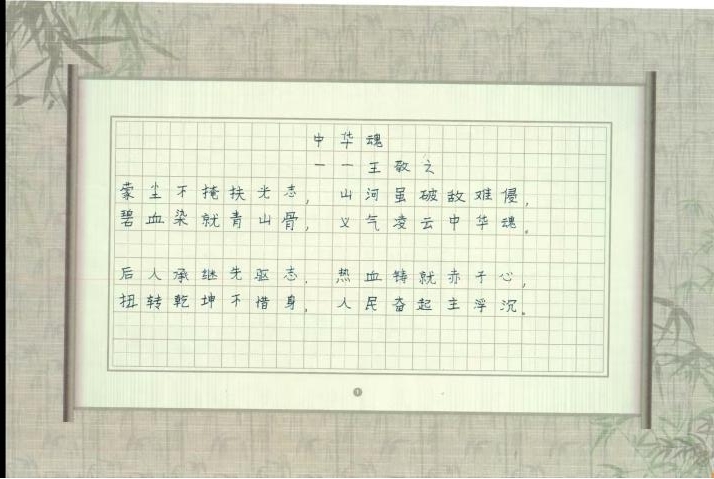 中华魂
——王敬之
蒙尘不掩扶光志，山河虽破敌难侵，
碧血染就青山骨，义气凌云中华魂。
后人承继先驱志，热血铸就赤子心，
扭转乾坤不惜身，人民奋起主浮沉。
1